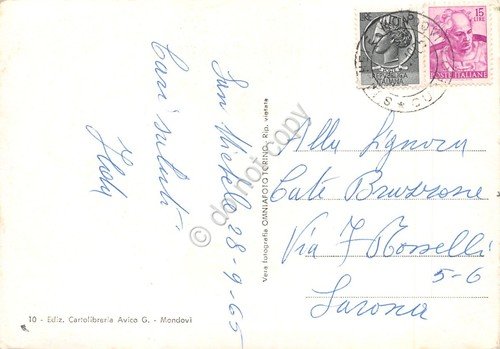 San Michele 28-9-65
Cari saluti
15
LIRE
POSTE ITALIANE
Alla Signora
Cate Bruzzone
Via F Rosselli
5-6
Savona
Vera fotografia OMNIAFOTO TORINO - Rip. vietata
10 - Ediz. Cartolibreria Avico G. - Mondovì
do not copy